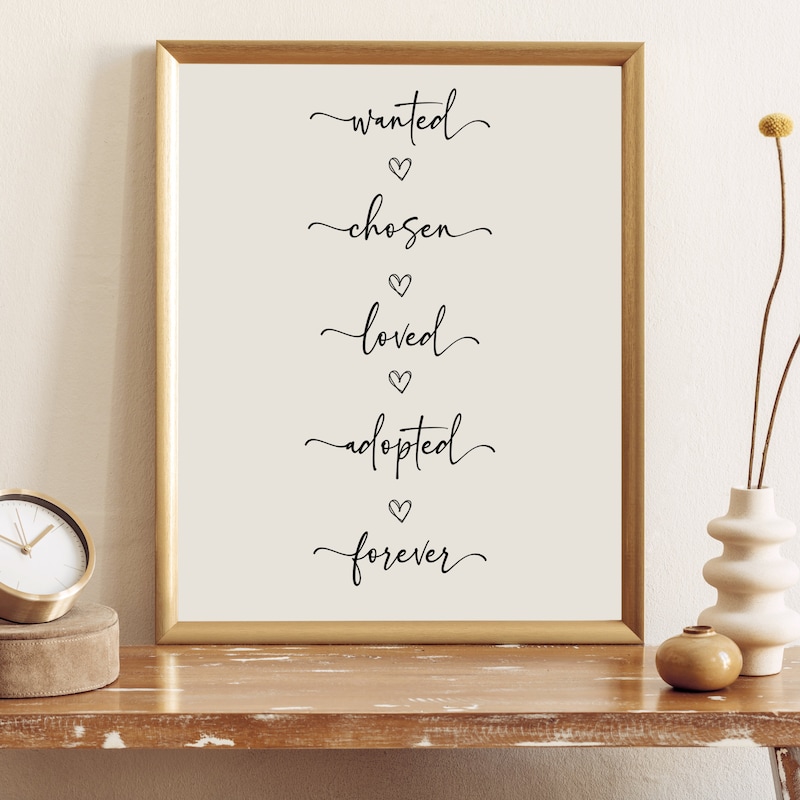 wanted
chosen
loved
adopted
forever